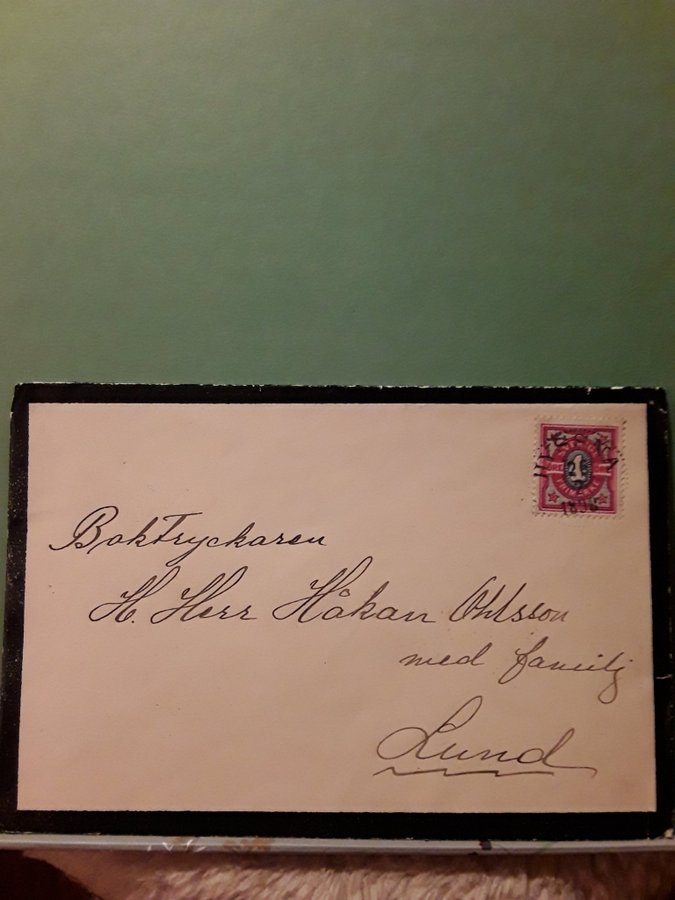 1
1898
Boktryckaren
H. Herr Håkan Ohlsson
med familj
Lund